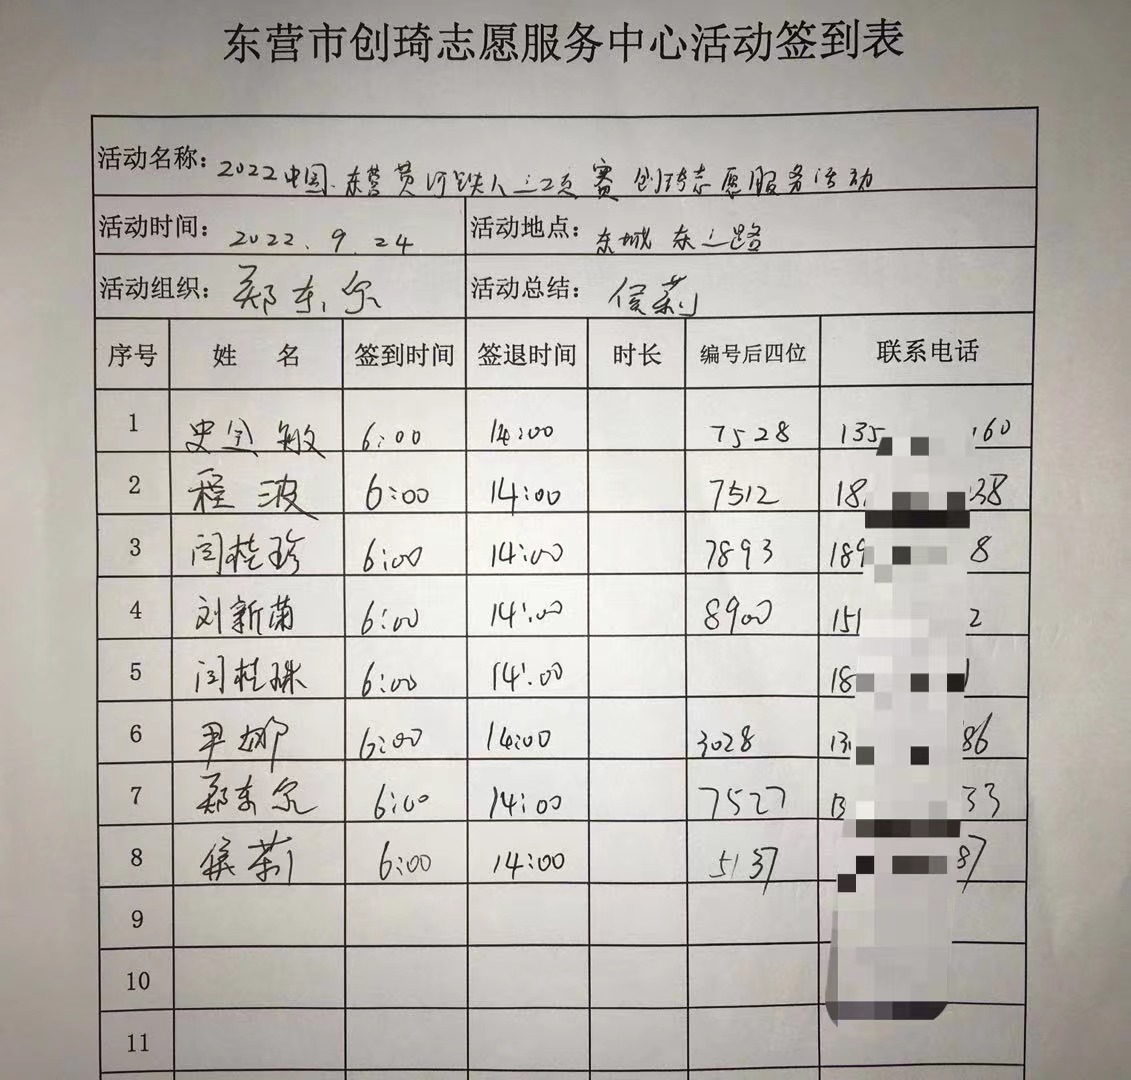 东营市创琦志愿服务中心活动签到表
活动名称：2022中国·东营黄河铁人三项赛创琦志愿服务活动
活动时间：2022.9.24 活动地点：东城东三路
活动组织：郑东尔 活动总结：侯莉
序号 姓名 签到时间 签退时间 时长 编号后四位 联系电话
1 史金敏 6:00 14:00 7528 135 60
2 程波 6:00 14:00 7512 18 38
3 闫桂珍 6:00 14:00 7893 189 8
4 刘新菊 6:00 14:00 8900 151 2
5 闫桂珠 6:00 14:00 18
6 尹娜 6:00 14:00 3028 13 86
7 郑东尔 6:00 14:00 7527 13 33
8 侯莉 6:00 14:00 5137 87
9
10
11